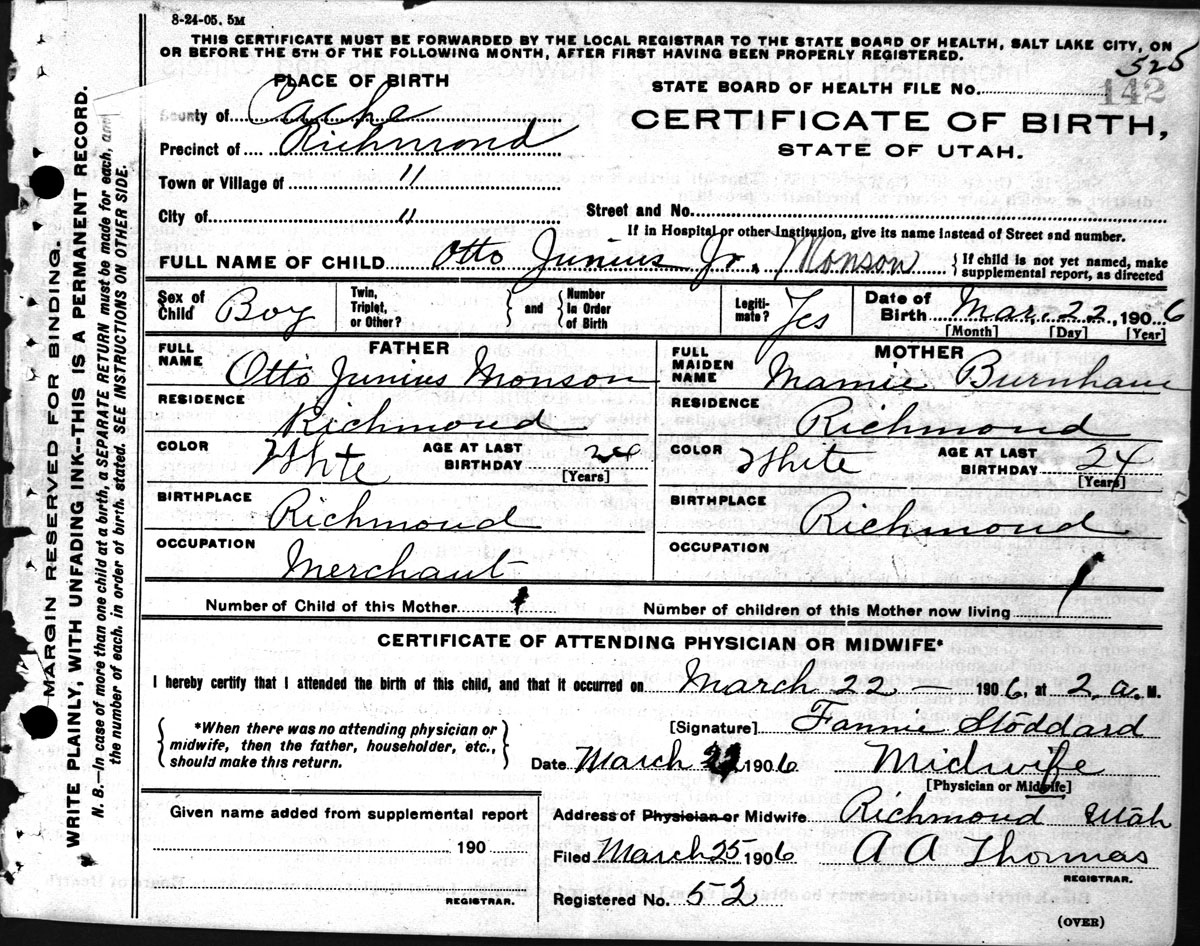 8-24-05. 5M
THIS CERTIFICATE MUST BE FORWARDED BY THE LOCAL REGISTRAR TO THE STATE BOARD OF HEALTH, SALT LAKE CITY, ON
OR BEFORE THE 5TH OF THE FOLLOWING MONTH, AFTER FIRST HAVING BEEN PROPERLY REGISTERED.
525
PLACE OF BIRTH
STATE BOARD OF HEALTH FILE No. 142
County of Cache
CERTIFICATE OF BIRTH,
Precinct of Richmond
STATE OF UTAH.
Town or Village of "
City of "
Street and No.
If in Hospital or other Institution, give its name instead of Street and number.
FULL NAME OF CHILD Otto Junius Jr. Monson
{If child is not yet named, make
supplemental report, as directed
Sex of Child Boy
Twin, Triplet, or Other?
} and { Number in Order of Birth
Legiti-mate? Yes
Date of Birth Mar. 22, 1906
[Month] [Day] [Year]
FATHER
FULL NAME Otto Junius Monson
RESIDENCE Richmond
COLOR White AGE AT LAST BIRTHDAY 24 [Years]
BIRTHPLACE Richmond
OCCUPATION Merchant
MOTHER
FULL MAIDEN NAME Mamie Burnham
RESIDENCE Richmond
COLOR White AGE AT LAST BIRTHDAY 24 [Years]
BIRTHPLACE Richmond
OCCUPATION
Number of Child of this Mother 1 Number of children of this Mother now living 1
CERTIFICATE OF ATTENDING PHYSICIAN OR MIDWIFE*
I hereby certify that I attended the birth of this child, and that it occurred on March 22 — 1906, at 2 a. M.
{*When there was no attending physician or
midwife, then the father, householder, etc.,
should make this return.}
[Signature] Fannie Stoddard
Date March 1906 Midwife
[Physician or Midwife]
Given name added from supplemental report
190
REGISTRAR.
Address of Physician or Midwife Richmond Utah
Filed March 25 1906 A A Thomas
REGISTRAR.
Registered No. 52
(OVER)
MARGIN RESERVED FOR BINDING.
WRITE PLAINLY, WITH UNFADING INK--THIS IS A PERMANENT RECORD.
N. B.—In case of more than one child at a birth, a SEPARATE RETURN must be made for each, and
the number of each, in order of birth, stated. SEE INSTRUCTIONS ON OTHER SIDE.